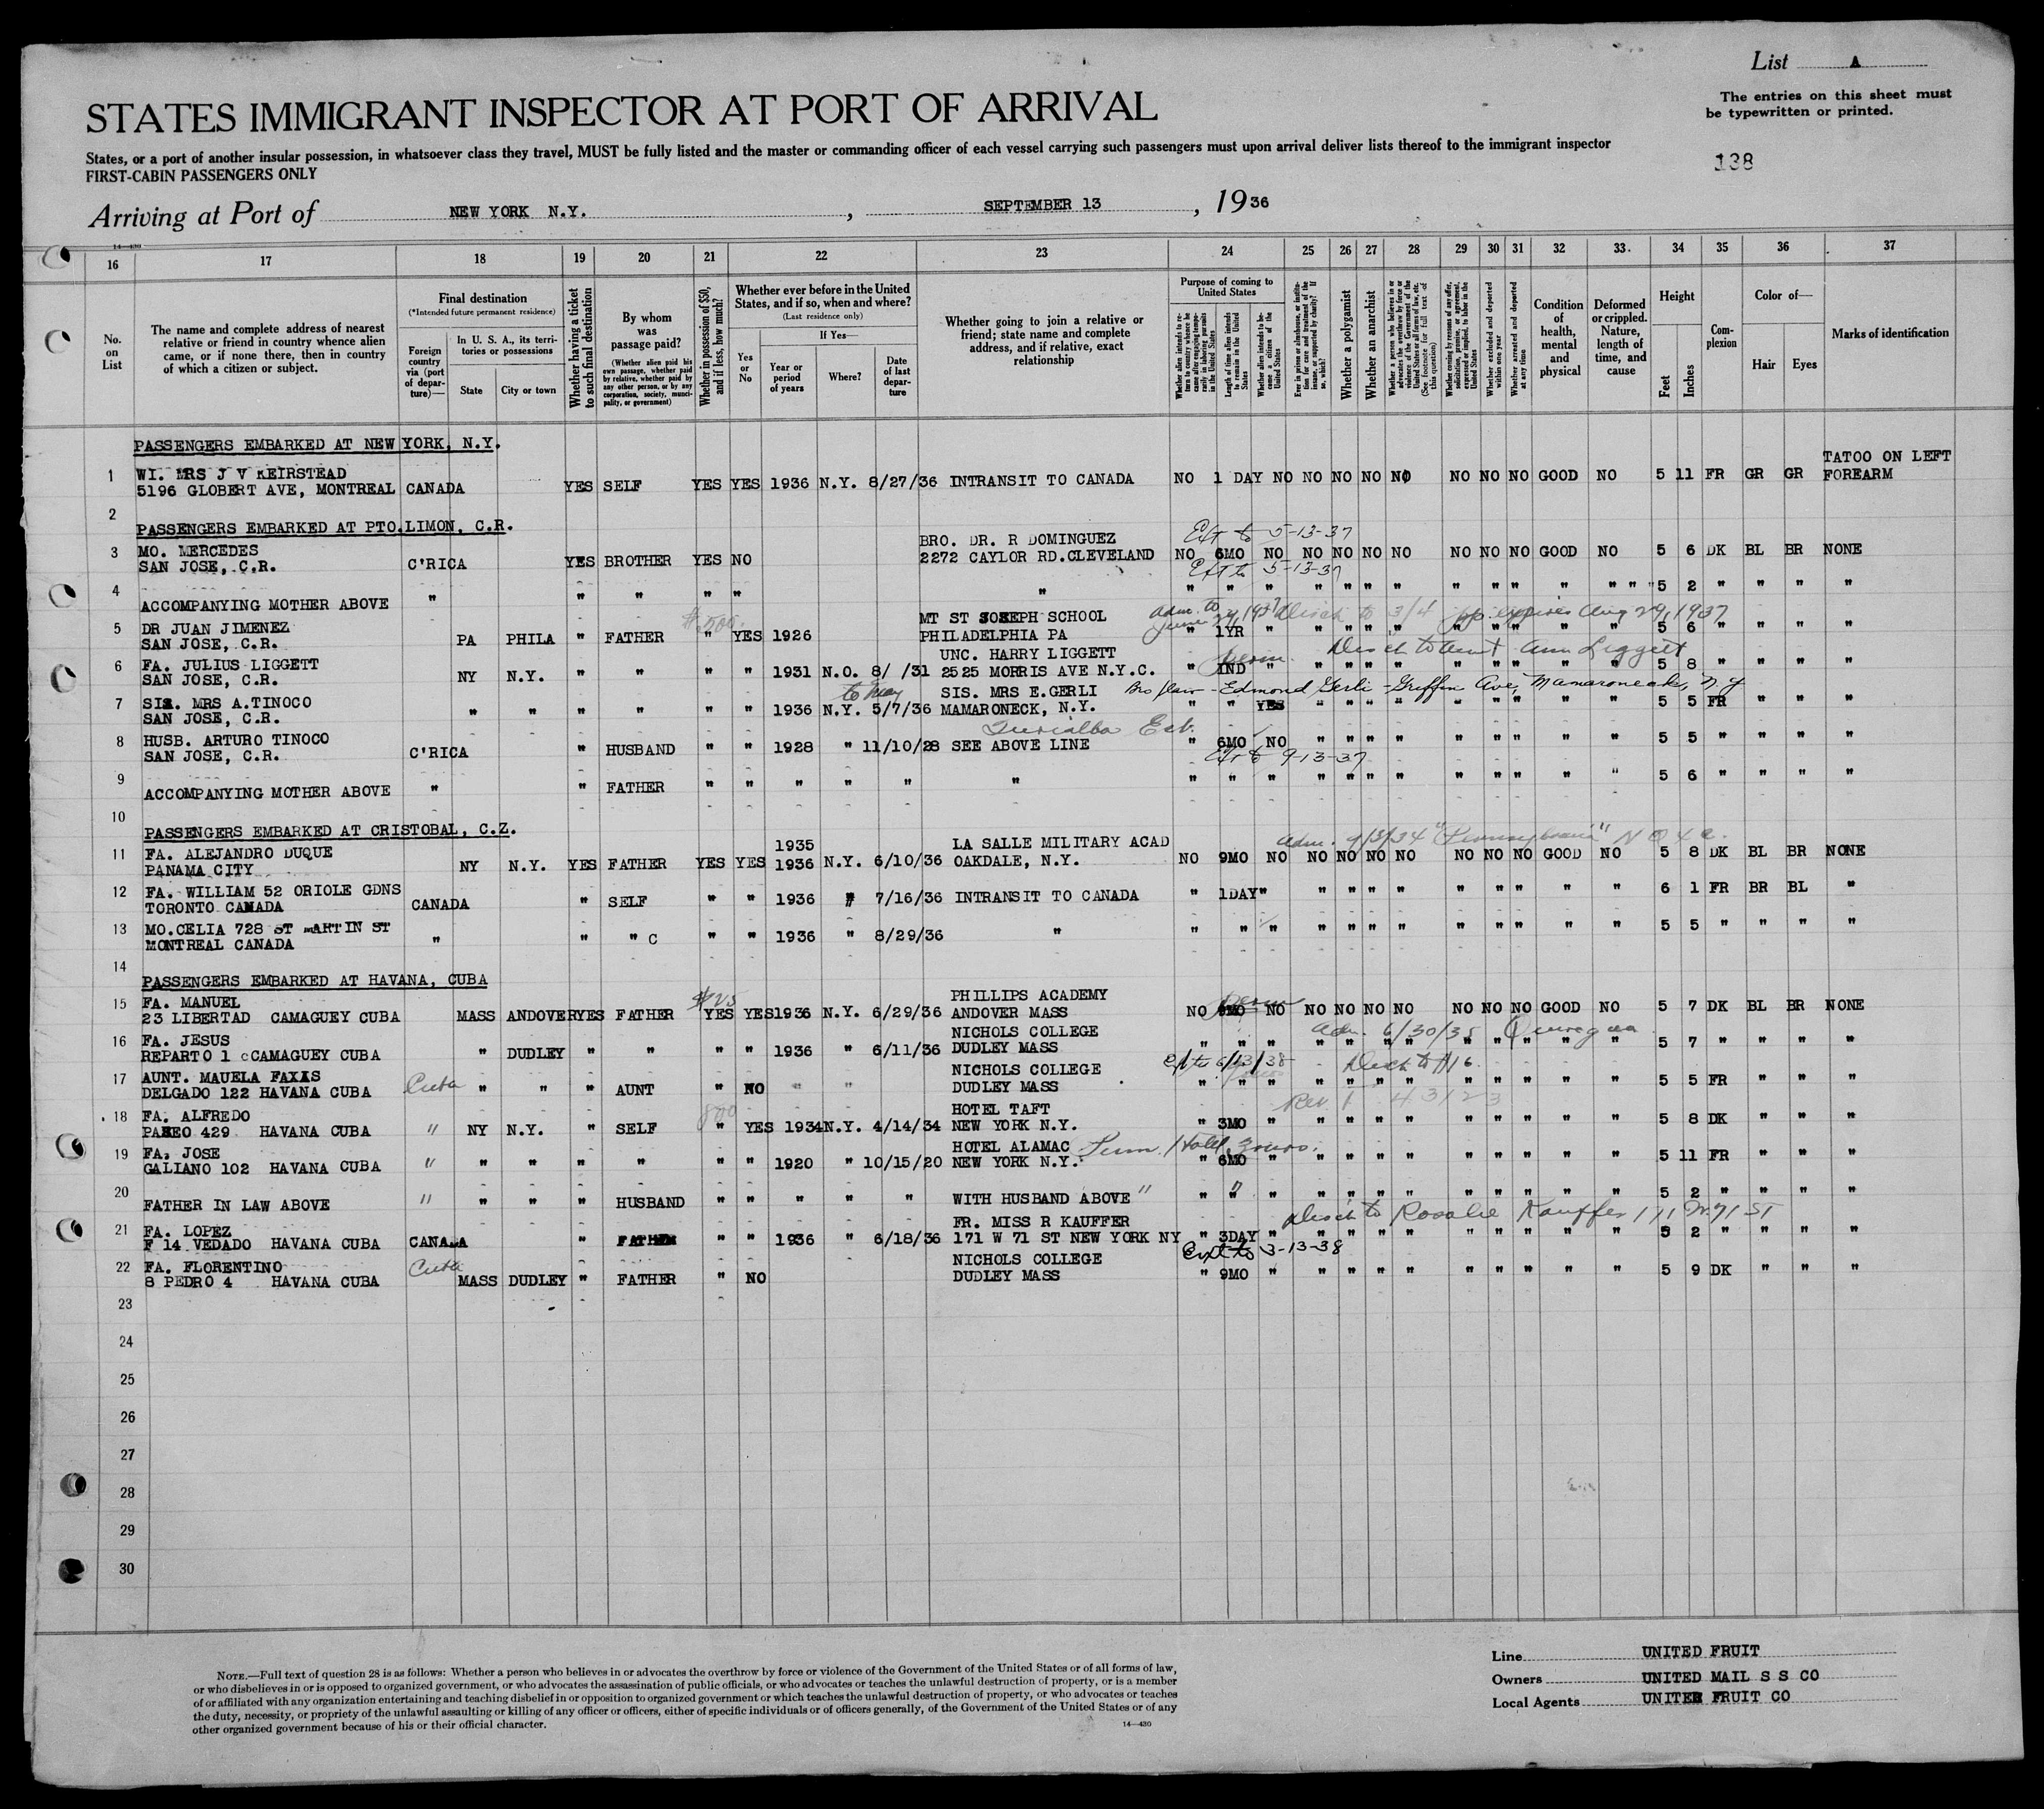 List A
The entries on this sheet must
be typewritten or printed.
STATES IMMIGRANT INSPECTOR AT PORT OF ARRIVAL
States, or a port of another insular possession, in whatsoever class they travel, MUST be fully listed and the master or commanding officer of each vessel carrying such passengers must upon arrival deliver lists thereof to the immigrant inspector
FIRST-CABIN PASSENGERS ONLY
138
Arriving at Port of NEW YORK N.Y. , SEPTEMBER 13 , 1936
14—430
16 17 18 19 20 21 22 23 24 25 26 27 28 29 30 31 32 33. 34 35 36 37
No. on List
The name and complete address of nearest relative or friend in country whence alien came, or if none there, then in country of which a citizen or subject.
Final destination
(*Intended future permanent residence)
Foreign country via (port of departure)—
In U. S. A., its territories or possessions
State
City or town
Whether having a ticket to such final destination
By whom was passage paid?
(Whether alien paid his own passage, whether paid by relative, whether paid by any other person, or by any corporation, society, municipality, or government)
Whether in possession of $50, and if less, how much?
Whether ever before in the United States, and if so, when and where?
(Last residence only)
Yes or No
If Yes—
Year or period of years
Where?
Date of last departure
Whether going to join a relative or friend; state name and complete address, and if relative, exact relationship
Purpose of coming to United States
Whether alien intends to return to country whence he came after engaging temporarily in laboring pursuits in the United States
Length of time alien intends to remain in the United States
Whether alien intends to become a citizen of the United States
Ever in prison or almshouse, or institution for care and treatment of the insane, or supported by charity? If so, which?
Whether a polygamist
Whether an anarchist
Whether a person who believes in or advocates the overthrow by force or violence of the Government of the United States or all forms of law, etc. (See footnote for full text of this question)
Whether coming by reasons of any offer, solicitation, promise, or agreement, expressed or implied, to labor in the United States
Whether excluded and deported within one year
Whether arrested and deported at any time
Condition of health, mental and physical
Deformed or crippled. Nature, length of time, and cause
Height
Feet
Inches
Complexion
Color of—
Hair
Eyes
Marks of identification
PASSENGERS EMBARKED AT NEW YORK, N.Y.
TATOO ON LEFT
1 WI. MRS J V KEIRSTEAD
5196 GLOBERT AVE, MONTREAL CANADA YES SELF YES YES 1936 N.Y. 8/27/36 INTRANSIT TO CANADA NO 1 DAY NO NO NO NO NO NO NO NO GOOD NO 5 11 FR GR GR FOREARM
2
PASSENGERS EMBARKED AT PTO.LIMON, C.R.
Ext to 5-13-37
BRO. DR. R DOMINGUEZ
3 MO. MERCEDES
SAN JOSE, C.R. C'RICA YES BROTHER YES NO 2272 CAYLOR RD.CLEVELAND NO 6MO NO NO NO NO NO NO NO NO GOOD NO 5 6 DK BL BR NONE
Ext to 5-13-37
4 ACCOMPANYING MOTHER ABOVE " " " " " " " " " " " " " " " " " " " " 5 2 " " " "
5 DR JUAN JIMENEZ $500. MT ST JOSEPH SCHOOL
Adm. to June 29, 1937
pp expires Aug 29, 1937
SAN JOSE, C.R. PA PHILA " FATHER " YES 1926 PHILADELPHIA PA " 1YR " " " " " " " " " " 5 6 " " " "
6 FA. JULIUS LIGGETT UNC. HARRY LIGGETT
Perm. Disch to aunt Ann Liggett
SAN JOSE, C.R. NY N.Y. " " " " 1931 N.O. 8/ /31 2525 MORRIS AVE N.Y.C. " IND " " " " " " " " " " 5 8 " " " "
to May
SIS. MRS E.GERLI Bro n law - Edmond Gerli - Griffin Ave, Mamaroneck, N.Y
7 SIS. MRS A.TINOCO
SAN JOSE, C.R. " " " " " " 1936 N.Y. 5/7/36 MAMARONECK, N.Y. " " YES " " " " " " " " " 5 5 FR " " "
8 HUSB. ARTURO TINOCO
SAN JOSE, C.R. C'RICA " HUSBAND " " 1928 " 11/10/28 SEE ABOVE LINE " 6MO NO " " " " " " " " " 5 5 " " " "
Ext to 9-13-37
9 ACCOMPANYING MOTHER ABOVE " " FATHER " " " " " " " " " " " " " " " " " " 5 6 " " " "
10
PASSENGERS EMBARKED AT CRISTOBAL, C.Z.
1935 LA SALLE MILITARY ACAD
Adm. 9/3/34 "Pennsylvania"
11 FA. ALEJANDRO DUQUE
PANAMA CITY NY N.Y. YES FATHER YES YES 1936 N.Y. 6/10/36 OAKDALE, N.Y. NO 9MO NO NO NO NO NO NO NO NO GOOD NO 5 8 DK BL BR NONE
12 FA. WILLIAM 52 ORIOLE GDNS
TORONTO CANADA CANADA " SELF " " 1936 " 7/16/36 INTRANSIT TO CANADA " 1DAY " " " " " " " " " " 6 1 FR BR BL "
13 MO.CELIA 728 ST MARTIN ST
MONTREAL CANADA " " " C " " 1936 " 8/29/36 " " " " " " " " " " " " " 5 5 " " " "
14
PASSENGERS EMBARKED AT HAVANA, CUBA
$25 PHILLIPS ACADEMY
15 FA. MANUEL
23 LIBERTAD CAMAGUEY CUBA MASS ANDOVER YES FATHER YES YES 1936 N.Y. 6/29/36 ANDOVER MASS NO 9MO NO NO NO NO NO NO NO NO GOOD NO 5 7 DK BL BR NONE
16 FA. JESUS NICHOLS COLLEGE Adm. 6/30/35
REPARTO 1 CAMAGUEY CUBA " DUDLEY " " " " 1936 " 6/11/36 DUDLEY MASS " " " " " " " " " " " " 5 7 " " " "
Ext to 6/13/38 Disch to #16.
17 AUNT. MAUELA FAXAS NICHOLS COLLEGE
DELGADO 122 HAVANA CUBA Cuba " " " AUNT " NO " " DUDLEY MASS " " " " " " " " " " " " 5 5 FR " " "
18 FA. ALFREDO 800 HOTEL TAFT
PASEO 429 HAVANA CUBA " NY N.Y. " SELF " YES 1934 N.Y. 4/14/34 NEW YORK N.Y. " 3MO " " " " " " " " " " 5 8 DK " " "
19 FA. JOSE HOTEL ALAMAC
GALIANO 102 HAVANA CUBA " " " " " " " 1920 " 10/15/20 NEW YORK N.Y. " 6MO " " " " " " " " " " 5 11 FR " " "
20 FATHER IN LAW ABOVE " " " " HUSBAND " " " " " WITH HUSBAND ABOVE " " " " " " " " " " " " " 5 2 " " " "
21 FA. LOPEZ FR. MISS R KAUFFER
Disch to Rosalie Kauffer 171 W 71 ST
F 14 VEDADO HAVANA CUBA CANADA " FATHER " " 1936 " 6/18/36 171 W 71 ST NEW YORK NY " 3DAY " " " " " " " " " " 5 2 " " " "
Ext to 3-13-38
22 FA. FLORENTINO NICHOLS COLLEGE
8 PEDRO 4 HAVANA CUBA Cuba MASS DUDLEY " FATHER " NO DUDLEY MASS " 9MO " " " " " " " " " " 5 9 DK " " "
23
24
25
26
27
28
29
30
NOTE.—Full text of question 28 is as follows: Whether a person who believes in or advocates the overthrow by force or violence of the Government of the United States or of all forms of law,
or who disbelieves in or is opposed to organized government, or who advocates the assassination of public officials, or who advocates or teaches the unlawful destruction of property, or is a member
of or affiliated with any organization entertaining and teaching disbelief in or opposition to organized government or which teaches the unlawful destruction of property, or who advocates or teaches
the duty, necessity, or propriety of the unlawful assaulting or killing of any officer or officers, either of specific individuals or of officers generally, of the Government of the United States or of any
other organized government because of his or their official character.
14—430
Line UNITED FRUIT
Owners UNITED MAIL S S CO
Local Agents UNITED FRUIT CO